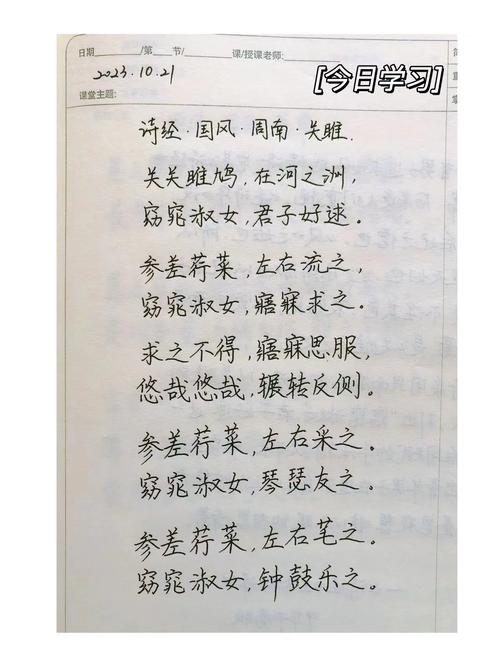 日期 /第 节/ 课/授课老师:
2023.10.21
[今日学习]
课堂主题:
诗经·国风·周南·关雎.
关关雎鸠,在河之洲,
窈窕淑女,君子好逑。
参差荇菜,左右流之,
窈窕淑女,寤寐求之。
求之不得,寤寐思服,
悠哉悠哉,辗转反侧。
参差荇菜,左右采之。
窈窕淑女,琴瑟友之。
参差荇菜,左右芼之。
窈窕淑女,钟鼓乐之。